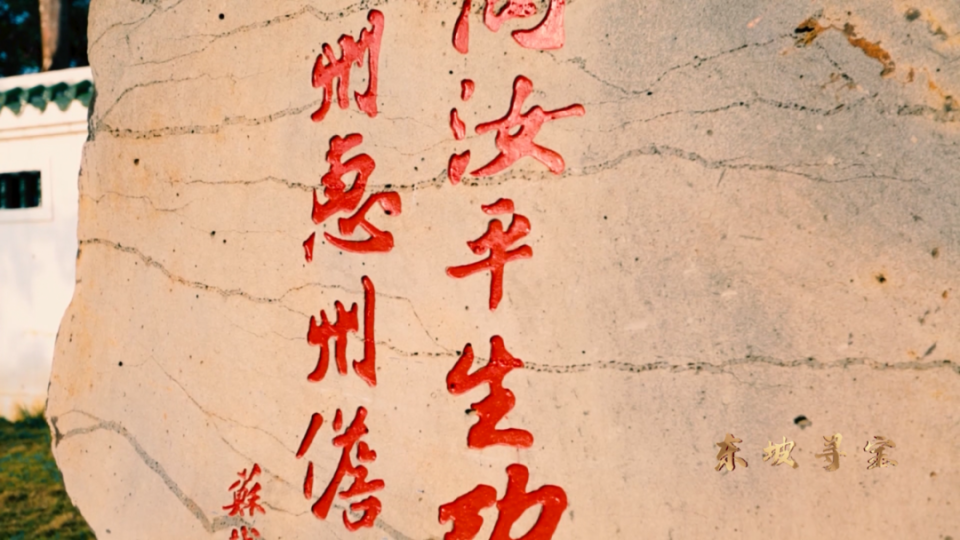 問汝平生功
州惠州儋
蘇
东坡寻宝